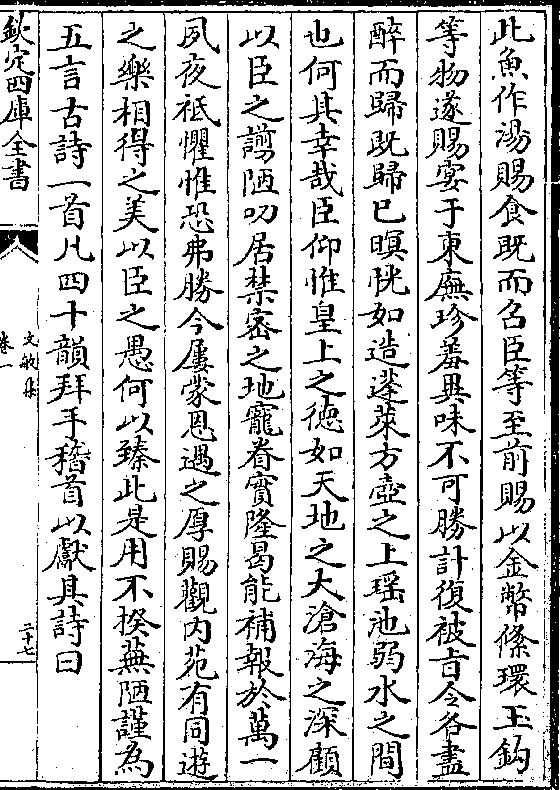 此魚作湯賜食既而名臣等至前賜以金幣絛環玉鈎
等物遂賜宴于東廡珍羞異味不可勝計復被旨令各盡
醉而歸既歸已暝恍如造蓬萊方壺之上瑶池弱水之間
也何其幸哉臣仰惟皇上之徳如天地之大滄海之深顧
以臣之譾陋叨居禁密之地寵眷實隆曷能補報於萬一
夙夜祗懼惟恐弗勝今屢蒙恩遇之厚賜觀内苑有同遊
之樂相得之美以臣之愚何以臻此是用不揆蕪陋謹為
五言古詩一首凡四十韻拜手稽首以獻其詩曰
欽定四庫全書
文敏集
卷一
二十七